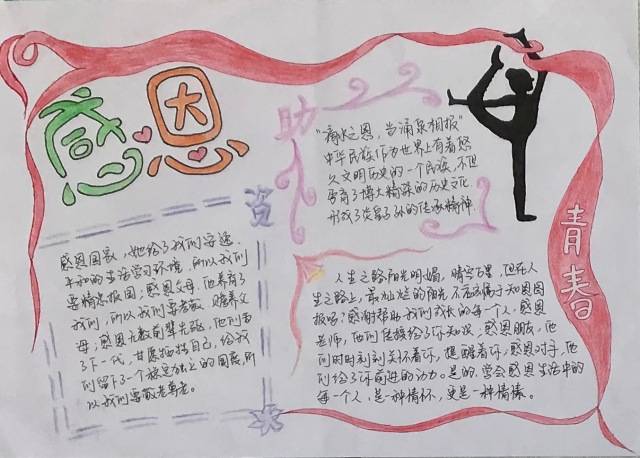 感恩
助
人
资
青春
"滴水之恩,当涌泉相报"
中华民族作为世界上有着悠
久文明历史的一个民族,不但
孕育了博大精深的历史文化
形成了
的传承精神.
感恩国家,她给了我们安逸
平和的生活学习环境,所以我们
要精忠报国,感恩父母,他养育了
我们,所以我们要孝敬、赡养父
母;感恩无数前辈先驱,他们为
了下一代,甘愿牺牲自己,给我
们留下了一个稳定加上的国度,所
以我们要敬老尊老。
人生之路阳光明媚,晴空万里,但在人
生之路上,最灿烂的阳光不应该属于知恩图
报吗?感谢帮助我们成长的每一个人,感恩
老师,他们传授给了你知识,感恩朋友,他
们时时刻刻关怀着你,提醒着你,感恩对手,他
们给了你前进的动力。是的,学会感恩生活中的
每一个人,是一种情怀,更是一种情愫。